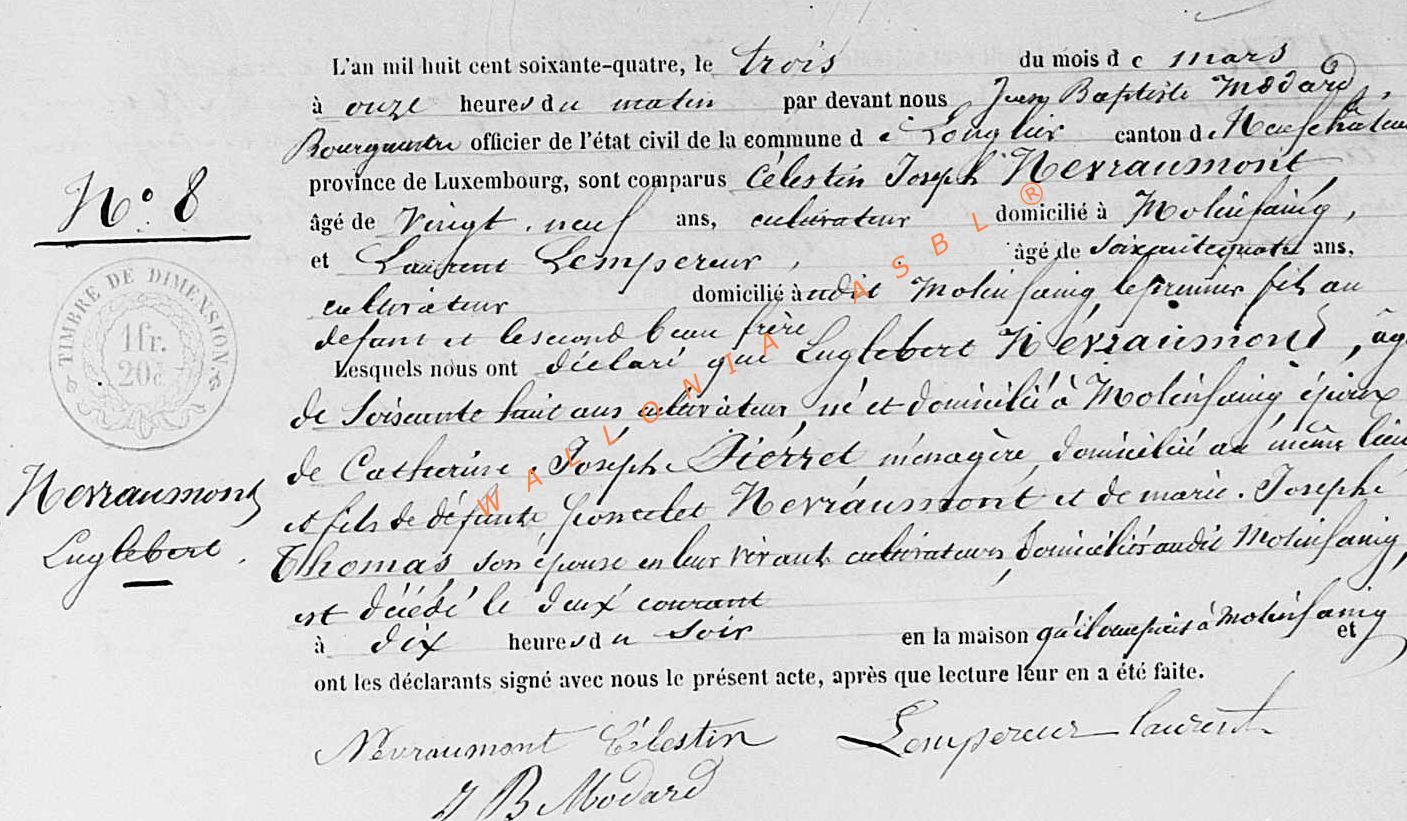 L'an mil huit cent soixante-quatre, le trois du mois de mars
à onze heures du matin par devant nous Jean Baptiste Modard,
Bourgmestre officier de l'état civil de la commune de Longlier canton de Neufchateau
province de Luxembourg, sont comparus Célestin Joseph Nevraumont,
N° 8
âgé de vingt-neuf ans, cultivateur domicilié à Molinfaing,
et Laurent Lempereur, âgé de soixantequatre ans,
cultivateur domicilié à udit Molinfaing, le premier fils au
défunt et le second beau frère
TIMBRE DE DIMENSION.
1 fr.
20 c
Lesquels nous ont déclaré que Luglebert Névraumont, âgé
de soixante huit ans, cultivateur, né et domicilié à Molinfaing époux
de Catherine Joseph Pierret ménagère, domiciliée au même lieu
Nevraumont
Luglebert.
et fils de défunts Poncelet Nevraumont et de marie Josephe
Thomas son épouse en leur vivant cultivateurs, domiciliés audit Molinfaing,
est décédé le deux courant
à dix heures du soir en la maison qu'il occupait à Molinfaing et
ont les déclarants signé avec nous le présent acte, après que lecture leur en a été faite.
Nevraumont Célestin Lempereur laurent
J B Modard
WALLONIA ASBL ®